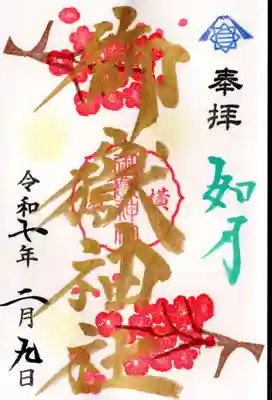 奉拝
如月
御嶽神社
横
令和七年 二月九日